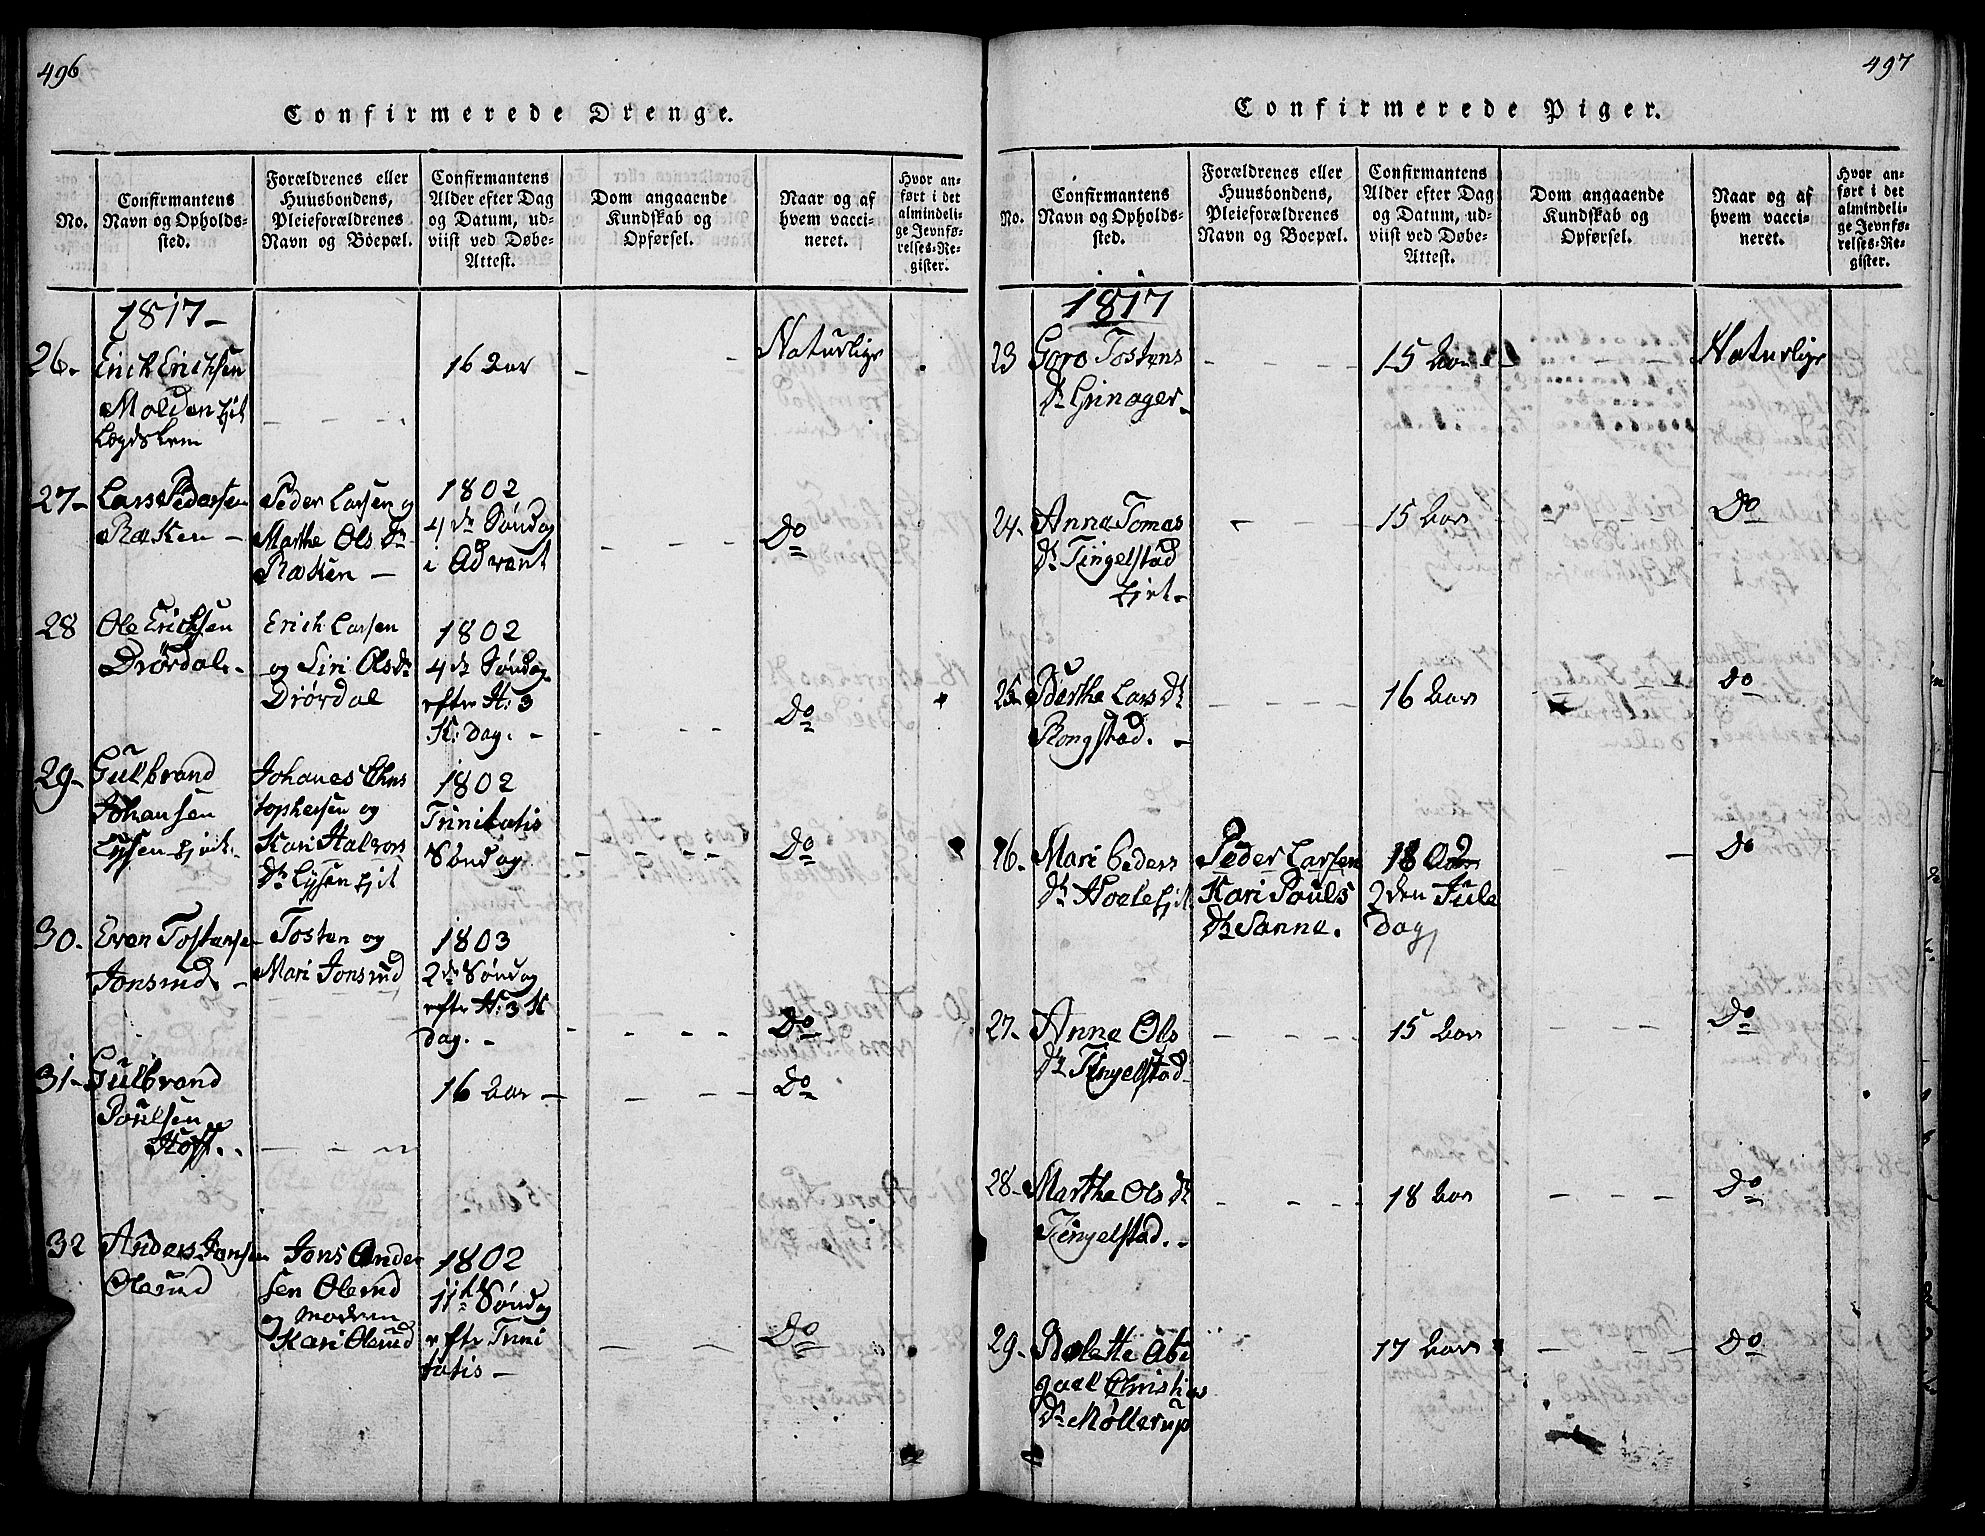 496
Confirmerede Drenge.
No.
Confirmantens
Navn og Opholds-
sted.
Forældrenes eller
Huusbondens,
Pleieforældrenes
Navn og Bøepæl.
Confirmantens
Alder efter Dag
og Datum, ud-
viist ved Døbe-
Attest.
Dom angaaende
Kundskab og
Opførsel.
Naar og af
hvem vacci-
neret.
Hvor an-
ført i det
almindeli-
ge Jevnfø-
relses-Re-
gister.
1817
26. Erich Erichsen
Molden Ejet
Lægdslem
16 Aar
Naturlige
27- Lars Pedersen
Raken
Peder Larsen og
Marthe Ols Dr
Raken
1802
4de Søndag
i Advent
Do
28 Ole Erichsen
Drørdal
Erich Larsen
og Siri Olsdr
Drørdal
1802
4de Søndag
efter H: 3
K: dag.
Do
29- Gulbrand
Johansen
Lysen Ejet
Johanes Chris
tophersen og
Kari Halvors
Dr Lysen Ejet
1802
Trinitatis
Søndag
Do
30. Even Tostense
Jonsrud
Tosten og
Mari Jonsrud
1803
2de Søndag
efter H: 3 K
dag.
Do
31- Gulbrand
Poulsen
Hoff.
16 Aar
Do
32 Anders Jonsen
Olerud
Jons Ander
sen Olerud
og Modren
Kari Olerud
1802
11te Søndag
efter Trini
tatis
Do
497
Confirmerede Piger.
No.
Confirmantens
Navn og Opholds-
sted.
Forældrenes eller
Huusbondens,
Pleieforældrenes
Navn og Boepæl.
Confirmantens
Alder efter Dag
og Datum, ud-
viist ved Døbe-
Attest.
Dom angaaende
Kundskab og
Opførsel.
Naar og af
hvem vacci-
neret.
Hvor an-
ført i det
almindeli-
ge Jevnfø-
relses-Re-
gister.
1817
23 Goro Tostens
Dr Grinager
15 Aar
Naturlige
24. Anne Tomas
Dr Tingelstad
Ejet
15 Aar
Do
25 Berthe Lars Dr
Rongstad.
16 Aar
Do
26. Mari Peders
Dr Hoale Ejet
Peder Larsen
Kari Pouls
Dr Sanne.
1802
2den Jule
Dag
Do
27- Anne Ols
Dr Tingelstad
15 Aar
Do
28- Marthe Ols Dr
Tingelstad.
18 Aar
Do
29- Bolette Abe
gael Christians
Dr Møllerup
17 Aar
Do